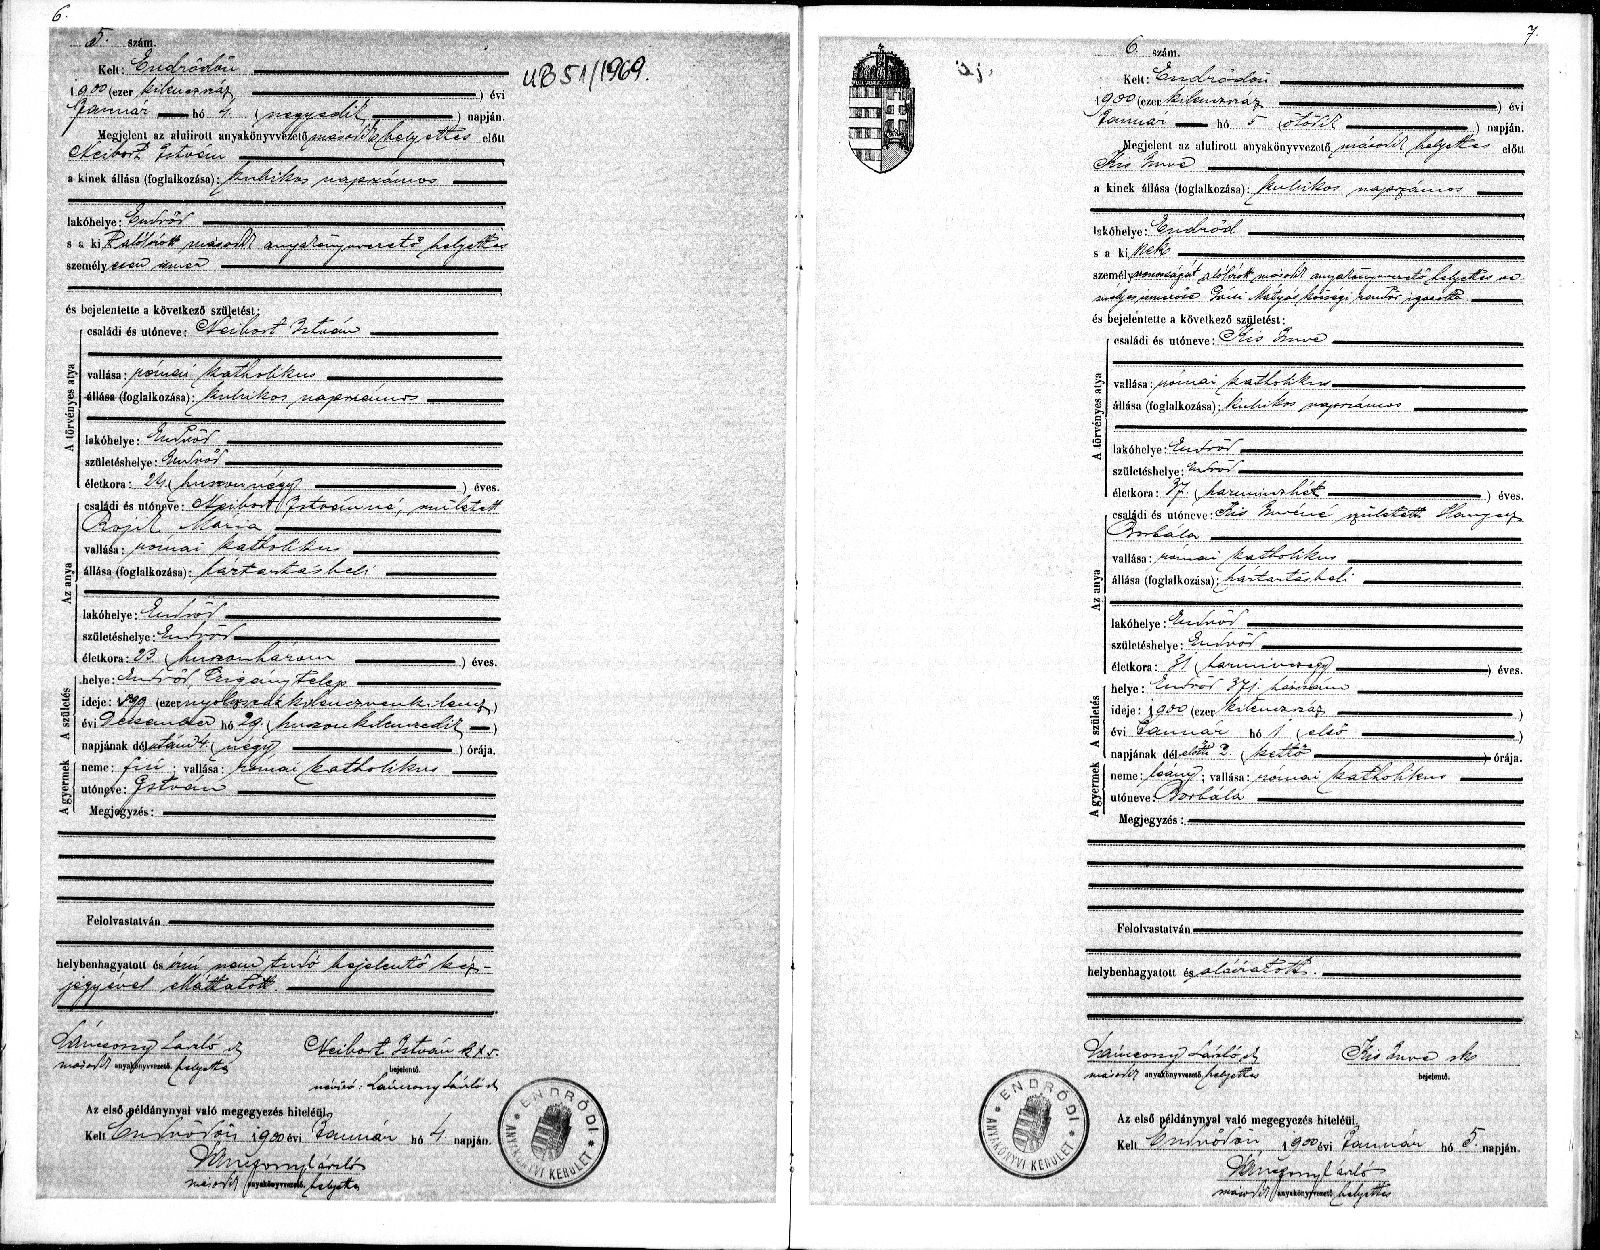 6.
5. szám.
Kelt: Endrődön
1900 (ezer kilenczszáz ) évi
Január hó 4 (negyedik ) napján.
Megjelent az alulirott anyakönyvvezető másodh helyettes előtt
Neibort István
a kinek állása (foglalkozása): kubikos napszámos
lakóhelye: Endrőd
s a ki alólírott másodh anyakönyvvezető helyettes
személyesen ismer
és bejelentette a következő születést:
A törvényes atya
családi és utóneve: Neibort István
vallása: római katholikus
állása (foglalkozása): kubikos napszámos
lakóhelye: Endrőd
születéshelye: Endrőd
életkora: 24 (huszonnégy ) éves.
Az anya
családi és utóneve: Neibort Istvánné, született
Mária
vallása: római katholikus
állása (foglalkozása): háztartásbeli
lakóhelye: Endrőd
születéshelye: Endrőd
életkora: 23 (huszonhárom ) éves.
A születés
helye: Endrőd, Czigánytelep
ideje: 1899 (ezer nyolczszázkilenczvenkilencz)
évi Deczember hó 29. (huszonkilenczedik )
napjának délután 4 (négy ) órája.
A gyermek
neme: fiú; vallása: római katholikus
utóneve: István
Megjegyzés:
Felolvastatván
helybenhagyatott és írni nem tudó bejelentő kéz-
jegyével elláttatott.
Lánczony László
másodh anyakönyvvezető helyettes
Neibort István
bejelentő.
Az első példánynyal való megegyezés hiteléül.
Kelt Endrődön 1900 évi Január hó 4. napján.
Lánczony László
másodh anyakönyvvezető helyettes
UB 51/1969.
ENDRŐDI
ANYAKÖNYVI KERÜLET
7.
6. szám.
Kelt: Endrődön
1900 (ezer kilenczszáz ) évi
Január hó 5 (ötödik ) napján.
Megjelent az alulirott anyakönyvvezető másodh helyettes előtt
Kis Imre
a kinek állása (foglalkozása): kubikos napszámos
lakóhelye: Endrőd
s a kinek
személyazonosságát alólírott másodh anyakönyvvezető helyettes
Mátyás községi rendőr igazolta
és bejelentette a következő születést:
A törvényes atya
családi és utóneve: Kis Imre
vallása: római katholikus
állása (foglalkozása): kubikos napszámos
lakóhelye: Endrőd
születéshelye: Endrőd
életkora: 37. (harminczhét ) éves.
Az anya
családi és utóneve: Kis Imréné született Hanyecz
Borbála
vallása: római katholikus
állása (foglalkozása): háztartásbeli
lakóhelye: Endrőd
születéshelye: Endrőd
életkora: 31 (harminczegy ) éves.
A születés
helye: Endrőd 371. házszám
ideje: 1900 (ezer kilenczszáz )
évi Január hó 1 (első )
napjának délelőtti 2 (kettő ) órája.
A gyermek
neme: leány; vallása: római katholikus
utóneve: Borbála
Megjegyzés:
Felolvastatván
helybenhagyatott és aláíratott.
Lánczony László
másodh anyakönyvvezető helyettes
Kis Imre sk
bejelentő.
Az első példánynyal való megegyezés hiteléül.
Kelt Endrődön 1900 évi Január hó 5. napján.
Lánczony László
másodh anyakönyvvezető helyettes
ENDRŐDI
ANYAKÖNYVI KERÜLET